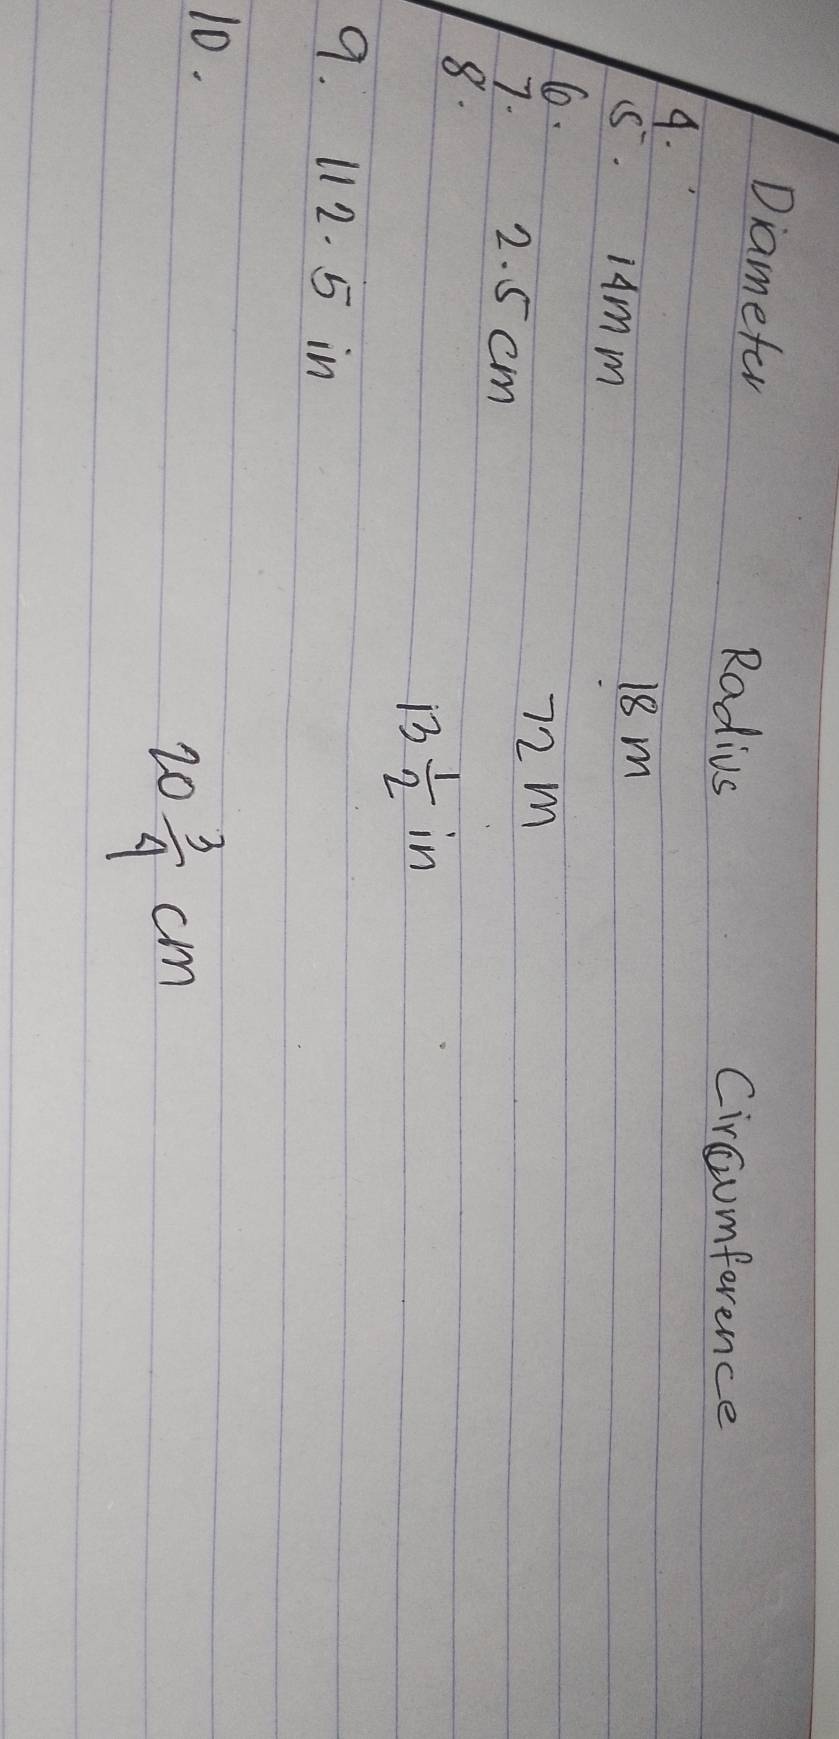 Diameter Radius Circumference
4. 18 m
5. 14mm
6. 72 m
7. 2.5 cm
8. 13 1/2 in
9. 112.5 in
10. 20 3/4 cm